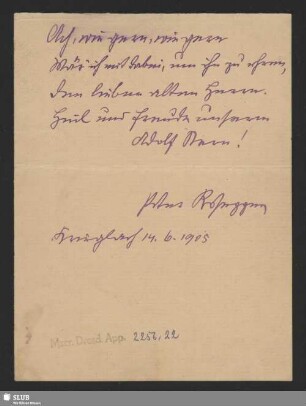 Ach, wie gern, wie gern
Wär ich mit dabei, um ihn zu ehren,
Den lieben alten Herrn.
Heil und Freude unserem
Adolf Stern!
Peter Rosegger
Krieglach 14.6.1905
Mscr. Dresd. App. 2256, 22
SLUB
Wir führen Wissen.